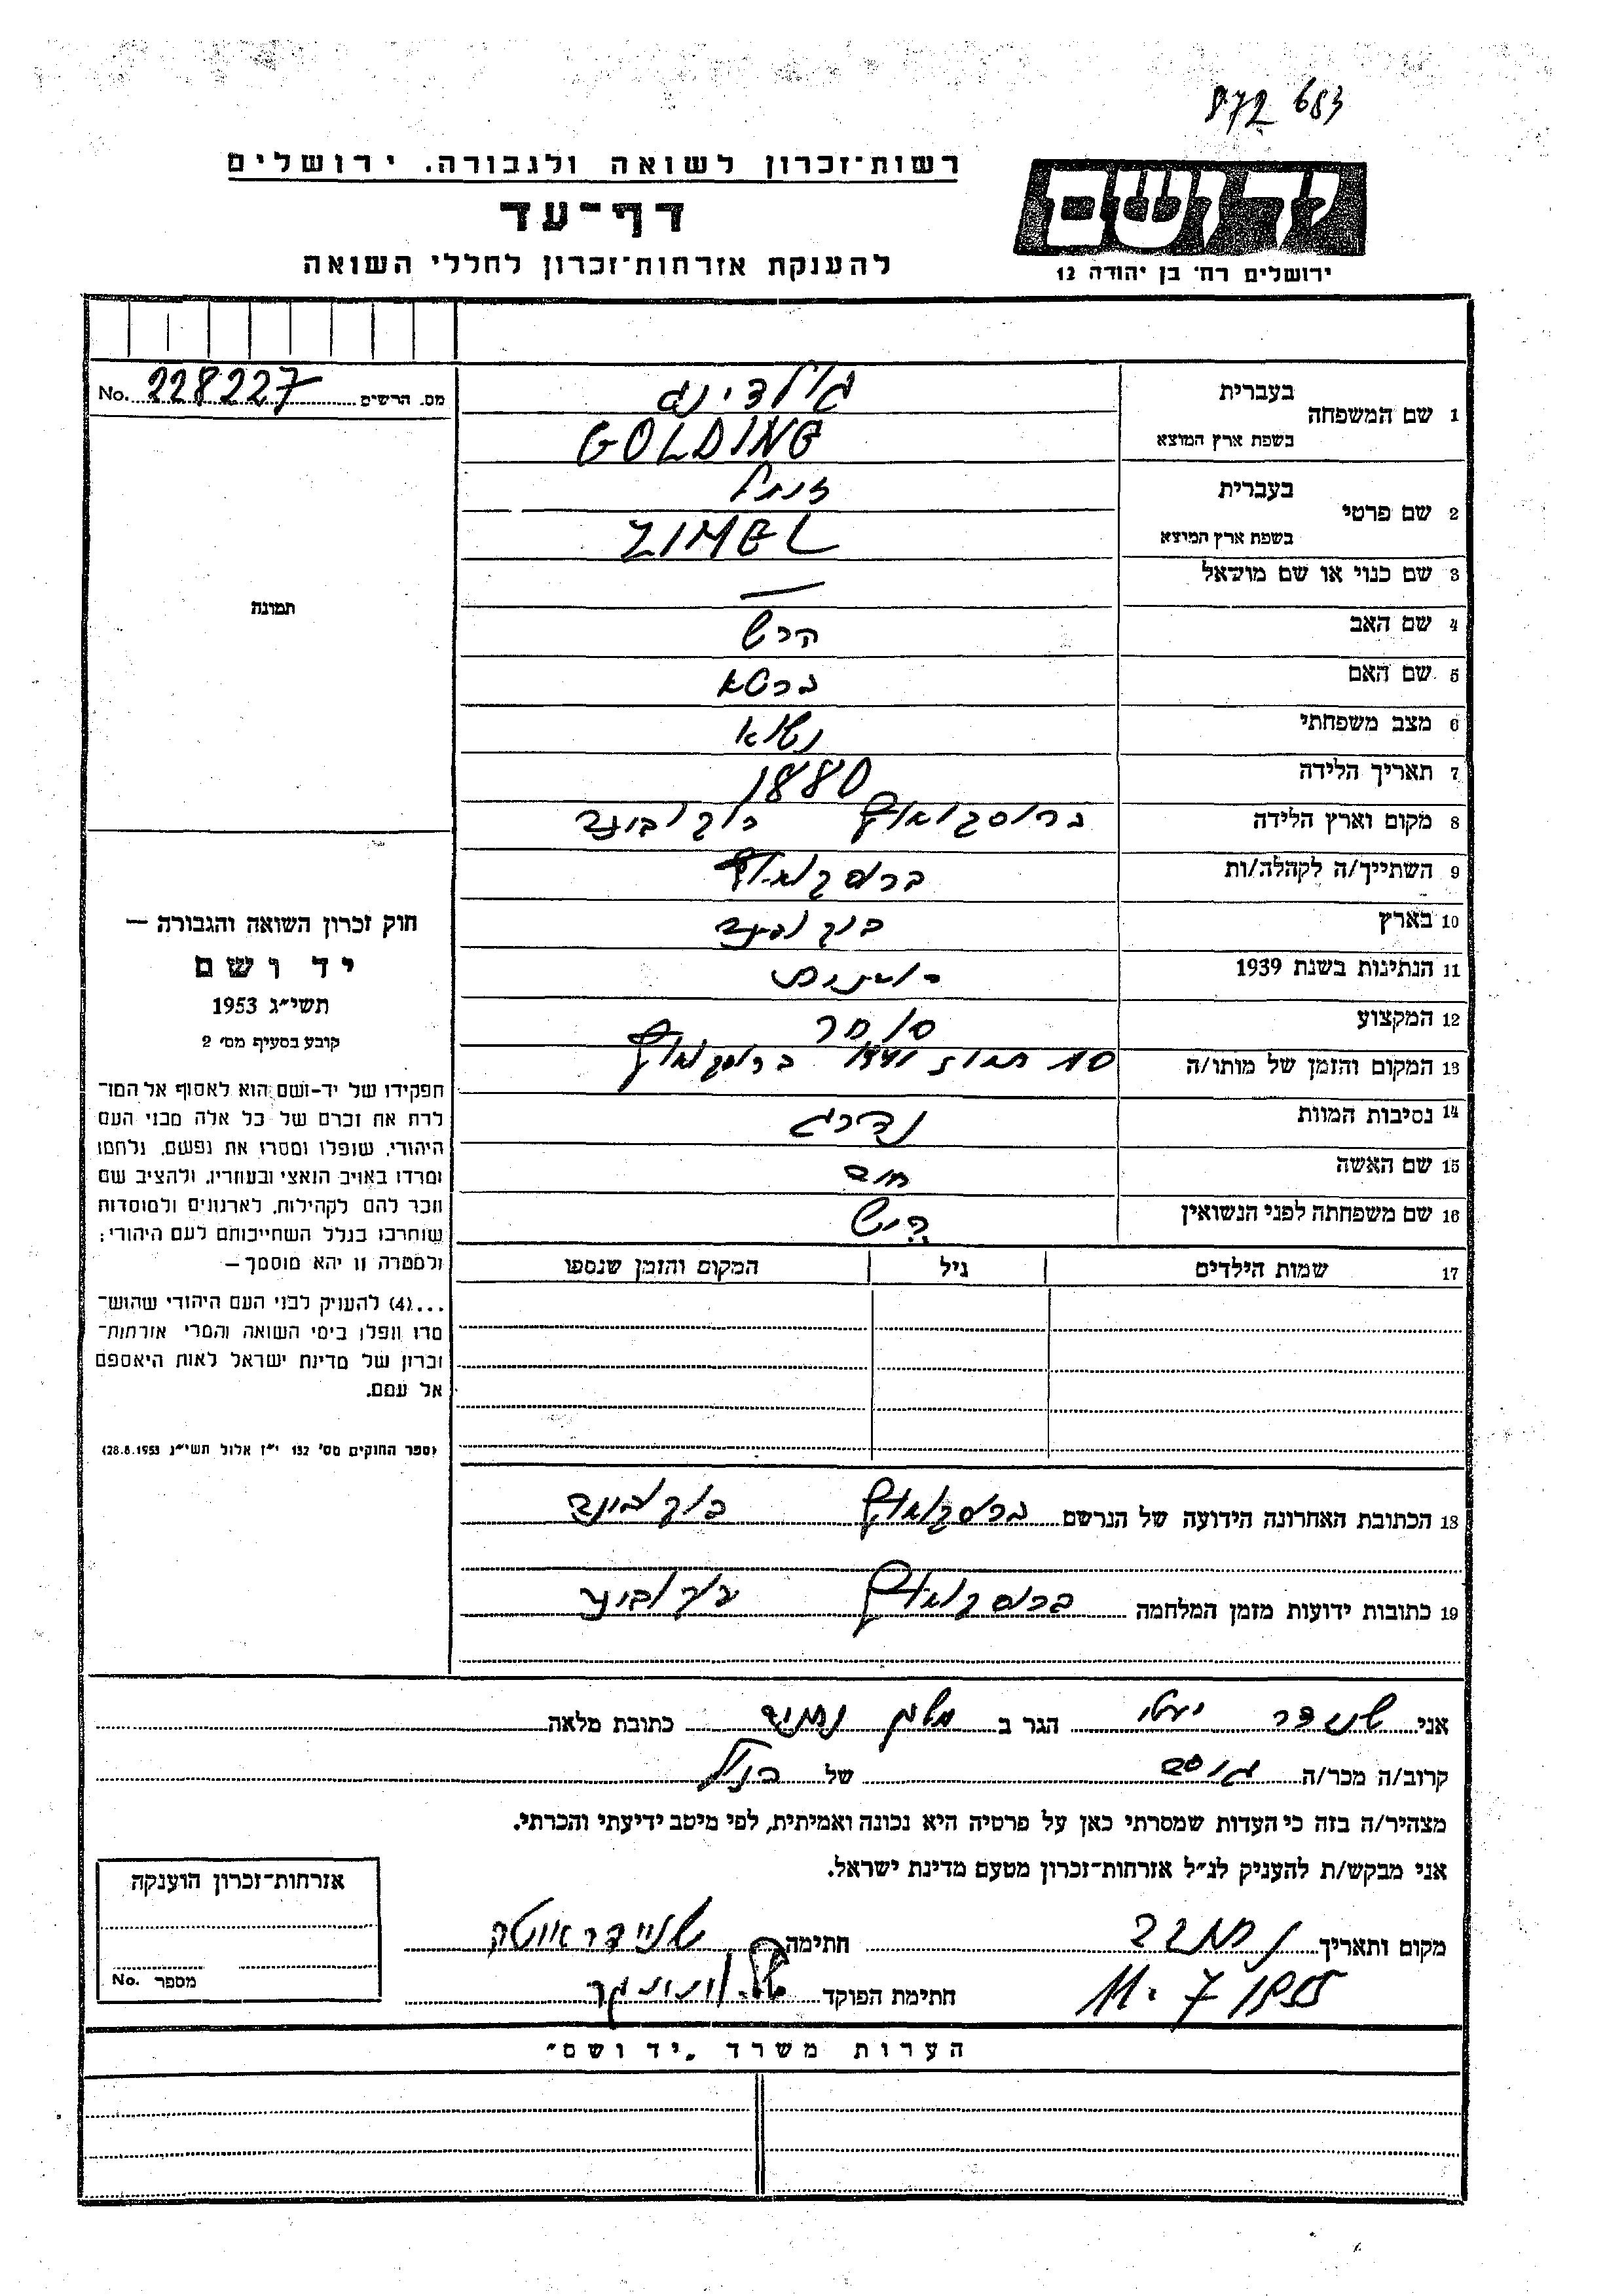 872 683
רשות־זכרון לשואה ולגבורה. ירושלים
דף־עד
להענקת אזרחות־זכרון לחללי השואה
ידושם
ירושלים רח׳ בן יהודה 12
No. 228227 מס. הרשים
1 שם המשפחה
בעברית גולדינג
בשפת ארץ המוצא GOLDING
2 שם פרטי
בעברית זימל
בשפת ארץ המוצא ZIMEL
3 שם כנוי או שם מושאל —
4 שם האב הרש
5 שם האם ברטא
6 מצב משפחתי נשוא
7 תאריך הלידה 1880
8 מקום וארץ הלידה ברוסקאוץ בוקובינה
9 השתייך/ה לקהלה/ות ברוסקאוץ
10 בארץ בוקובינה
11 הנתינות בשנת 1939
12 המקצוע סוחר
13 המקום והזמן של מותו/ה תמוז 1941 ברוסקאוץ
14 נסיבות המוות נהרג
15 שם האשה
16 שם משפחתה לפני הנשואין
17 שמות הילדים גיל המקום והזמן שנספו
תמונה
חוק זכרון השואה והגבורה —
יד ושם
תשי״ג 1953
קובע בסעיף מס׳ 2
תפקידו של יד־ושם הוא לאסוף אל המו־
לדת את זכרם של כל אלה מבני העם
היהודי, שנפלו ומסרו את נפשם, נלחמו
ומרדו באויב הנאצי ובעוזריו, ולהציב שם
וזכר להם לקהילות, לארגונים ולמוסדות
שנחרבו בגלל השתייכותם לעם היהודי;
ולמטרה זו יהא מוסמך —
...(4) להעניק לבני העם היהודי שהוש־
מדו ונפלו בימי השואה והמרי אזרחות־
זכרון של מדינת ישראל לאות היאספם
אל עמם.
(ספר החוקים מס׳ 132 י״ז אלול תשי״ג 28.8.1953)
18 הכתובת האחרונה הידועה של הנרשם ברוסקאוץ בוקובינה
19 כתובות ידועות מזמן המלחמה ברוסקאוץ בוקובינה
אני שניידר הגר ב כתובת מלאה
קרוב/ה מכר/ה גיסה של הנ״ל
מצהיר/ה בזה כי העדות שמסרתי כאן על פרטיה היא נכונה ואמיתית, לפי מיטב ידיעתי והכרתי.
אני מבקש/ת להעניק לנ״ל אזרחות־זכרון מטעם מדינת ישראל.
מקום ותאריך 11.7 1955 חתימה שניידר איטה
חתימת הפוקד
אזרחות־זכרון הוענקה
מספר No.
הערות משרד „יד ושם״